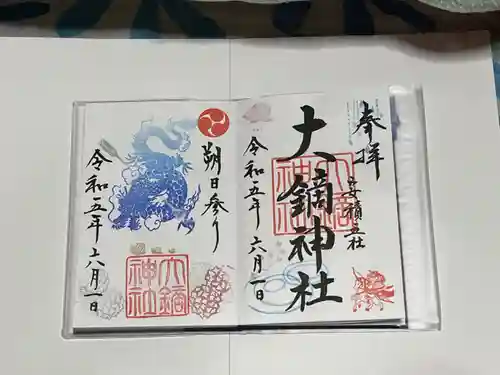 奉拝
安積五社
大鏑神社
令和五年 六月一日
大鏑神社
朔日参り
令和五年 六月一日
大鏑神社